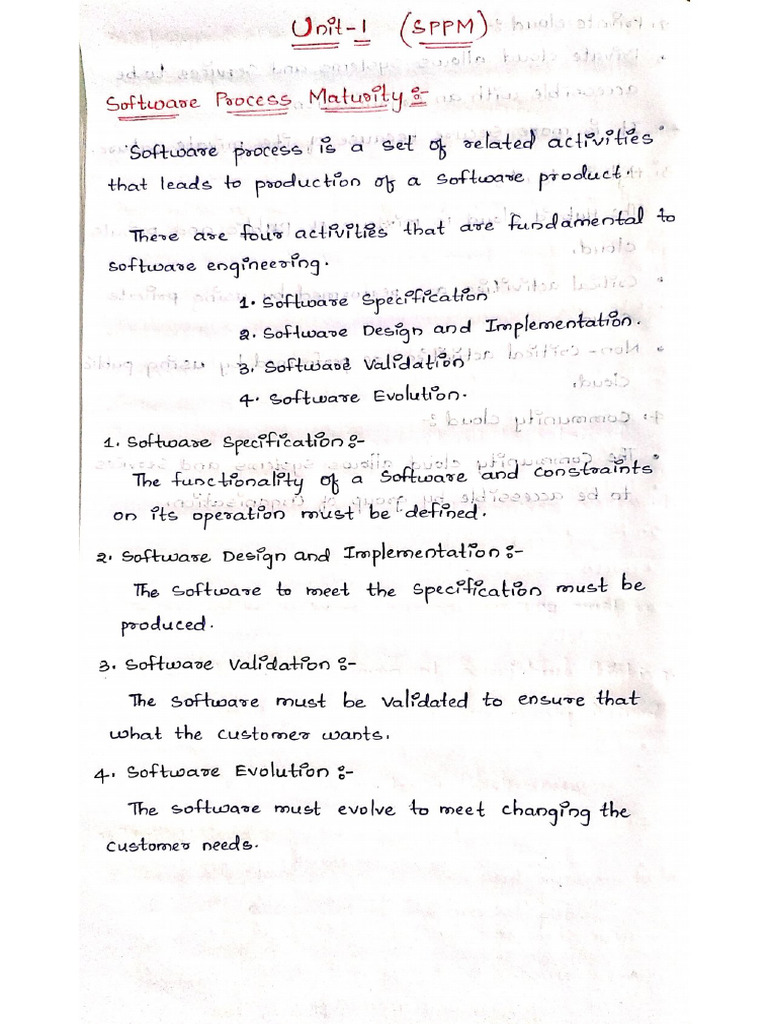 Unit-1 (SPPM)
Software Process Maturity :-
Software process is a set of related activities
that leads to production of a software product.
There are four activities that are fundamental to
software engineering.
1. Software Specification
2. Software Design and Implementation.
3. Software Validation
4. Software Evolution.
1. Software Specification :-
The functionality of a software and constraints
on its operation must be defined.
2. Software Design and Implementation :-
The software to meet the specification must be
produced.
3. Software Validation :-
The software must be validated to ensure that
what the customer wants.
4. Software Evolution :-
The software must evolve to meet changing the
customer needs.